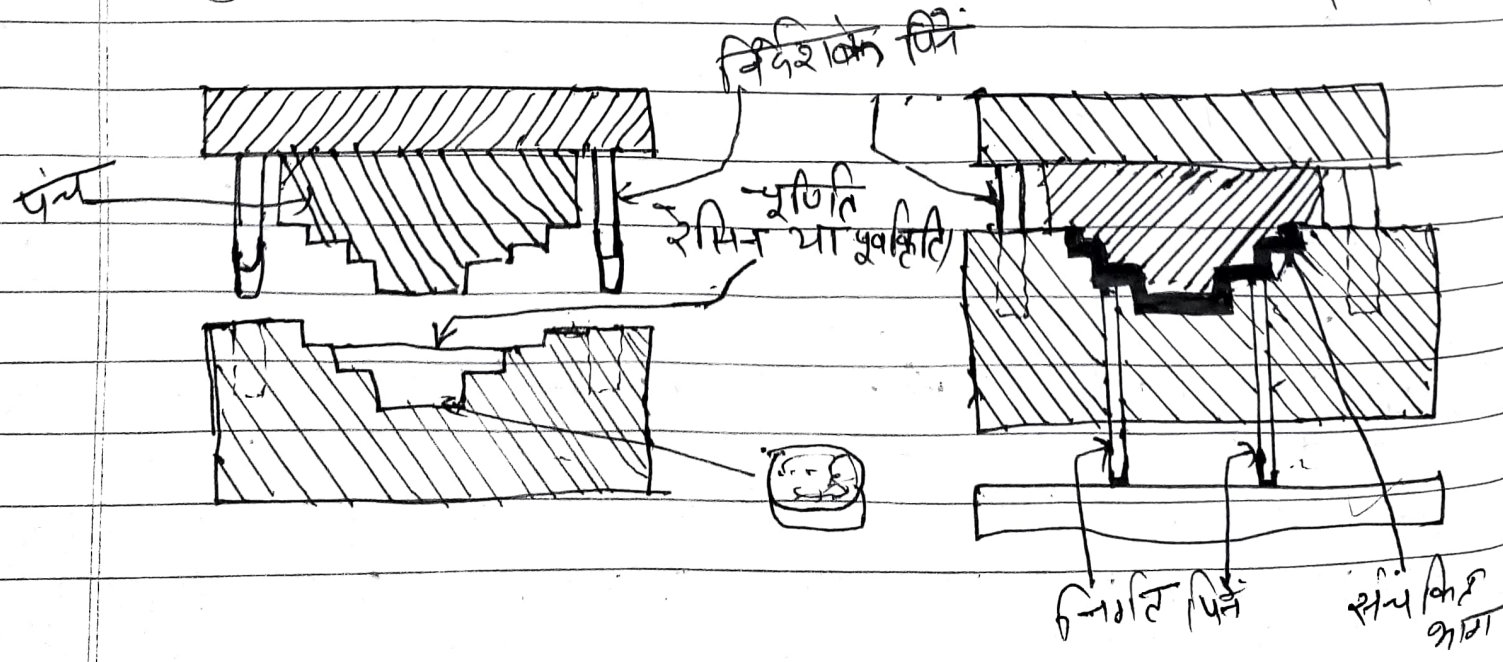 निर्देशांक पिनें
पंच
चूर्णित
रेसिन या पूर्वाकृति
निर्गति पिनें
संचकित
भाग